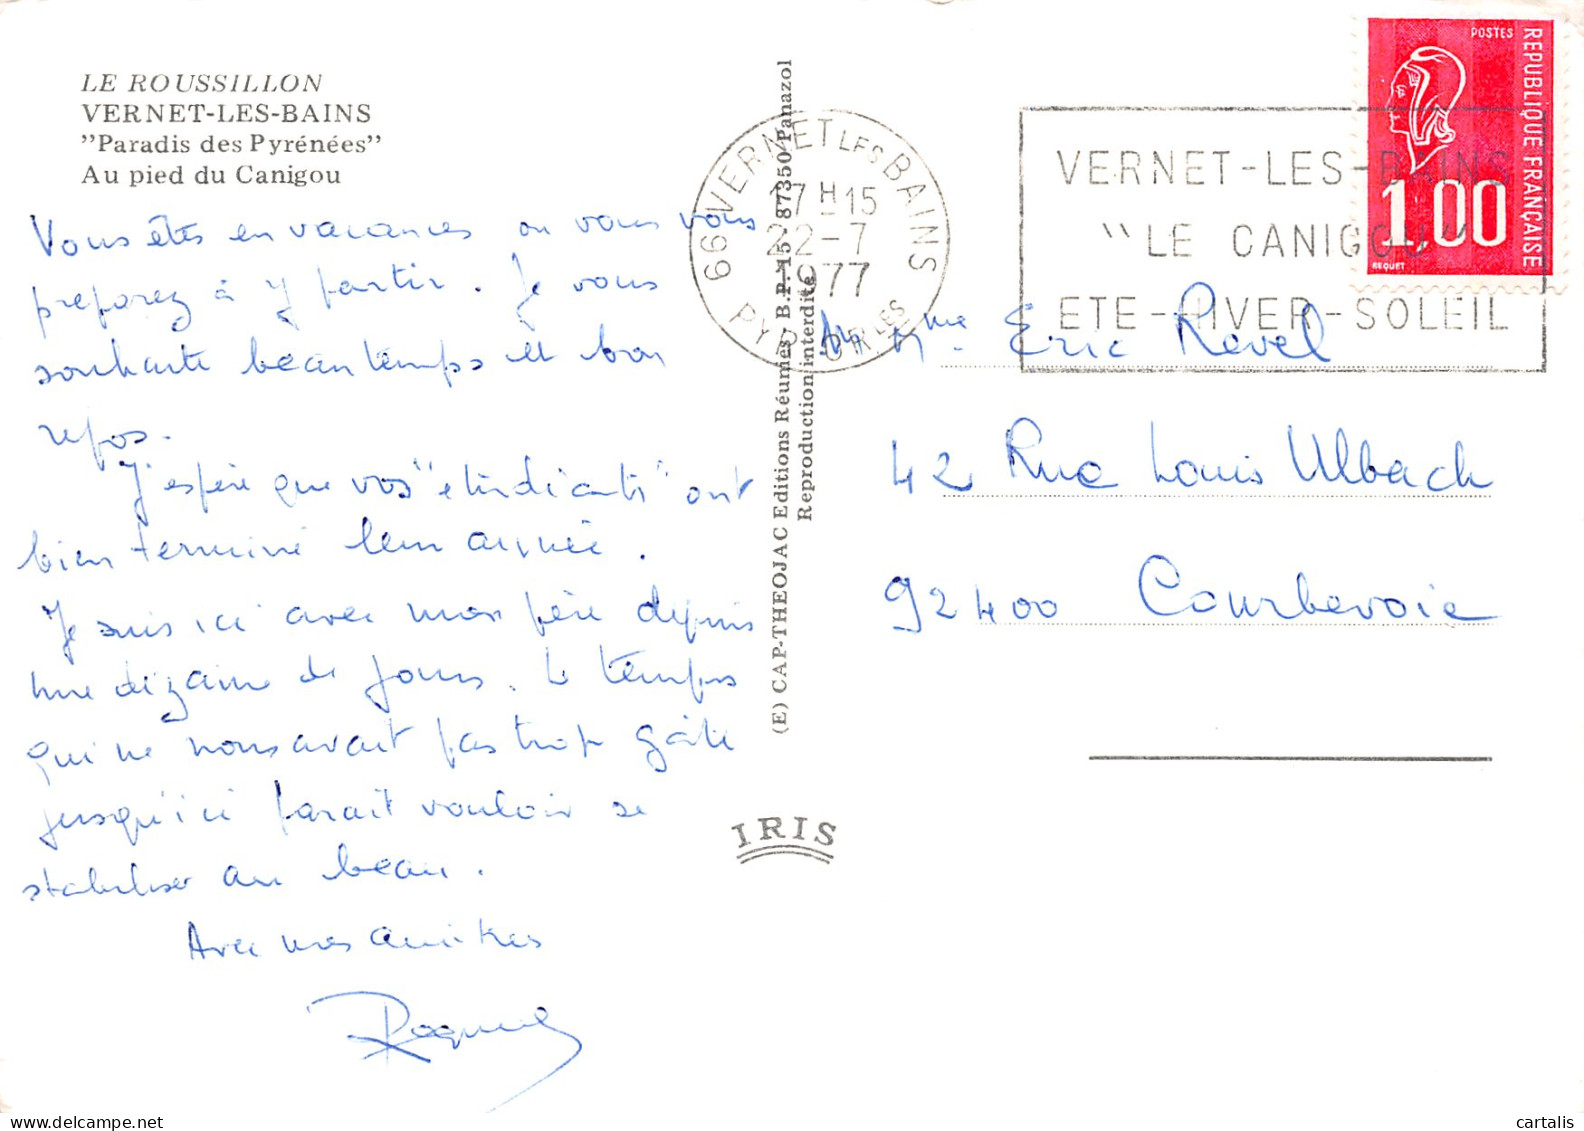 LE ROUSSILLON
VERNET-LES-BAINS
"Paradis des Pyrénées"
Au pied du Canigou
Vous êtes en vacances ou vous vous
préparez à y partir. Je vous
souhaite beau temps et bon
repos.
J'espère que vos "étudiants" ont
bien terminé leur année.
Je suis ici avec mon père depuis
une dizaine de jours. Le temps
qui ne nous avait pas trop gâté
jusqu'ici paraît vouloir se
stabiliser au beau.
Avec mes amitiés
(E) CAP-THEOJAC Editions Réunies - B.P. 15 - 87350 Panazol
Reproduction interdite
IRIS
66 VERNET LES BAINS
17 H 15
22-7
1977
PYR. ORLES
VERNET-LES-BAINS
"LE CANIGOU"
ETE-HIVER-SOLEIL
POSTES
REPUBLIQUE FRANÇAISE
1,00
BEQUET
M. Mme Eric Revel
42 Rue Louis Ulbach
92400 Courbevoie
cartalis